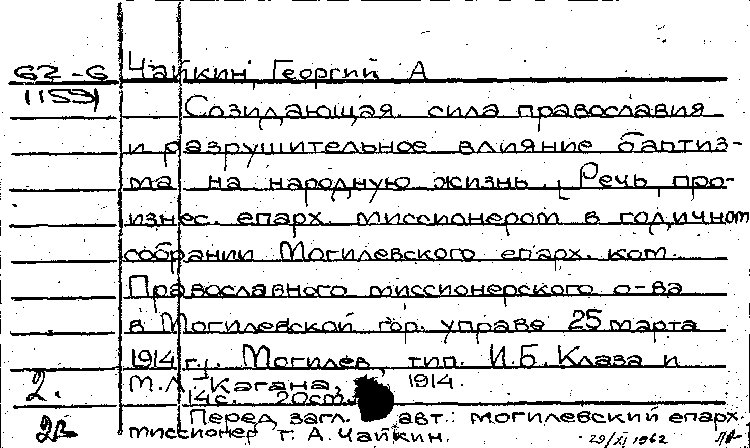 62-6
1159
Чайкин, Георгий А
Созидающая сила православия
и разрушительное влияние баптиз-
ма на народную жизнь. [Речь, про-
изнес. епарх. миссионером в годичном
собрании Могилевского епарх. ком.
Православного миссионерского о-ва
в Могилевской гор. управе 25 марта
1914 г.]. Могилев, тип. И.Б. Клаза и
М.Л. Кагана, 1914.
14 с. 20 см.
2.
Перед загл. авт.: могилевский епарх.
миссионер Г. А. Чайкин.
29/XI 1962